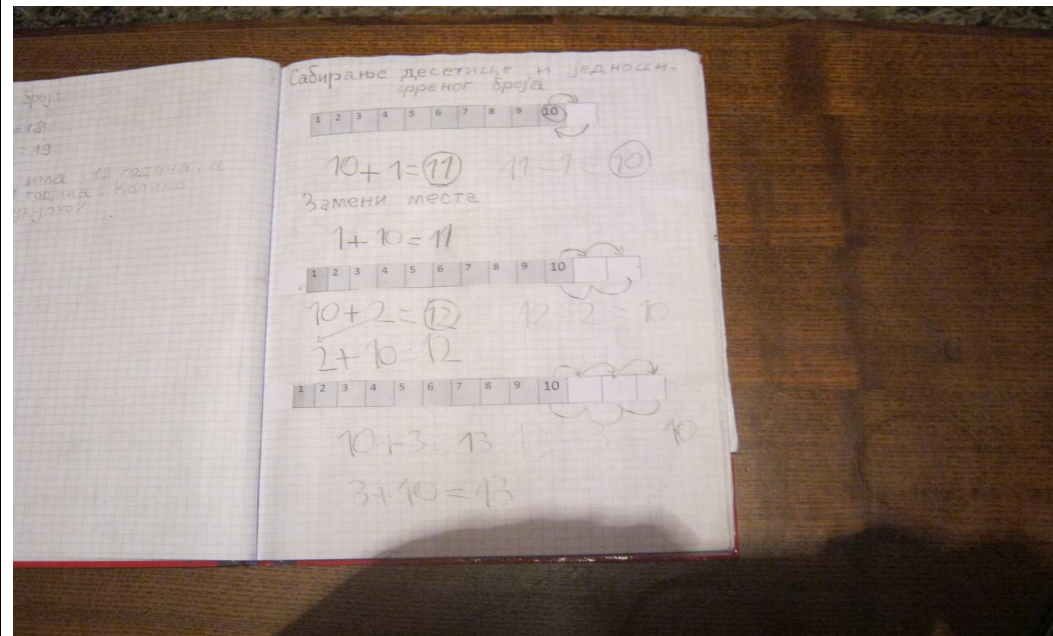 број:
=18
=19
има 12 година, а
година. Колико
Сабирање десетице и једноци-
френог броја
1 2 3 4 5 6 7 8 9 10
10+1=11 11-1=10
Замени места
1+10=11
1 2 3 4 5 6 7 8 9 10
10+2=12 12-2=10
2+10=12
1 2 3 4 5 6 7 8 9 10
10+3=13 13-3 10
3+10=13